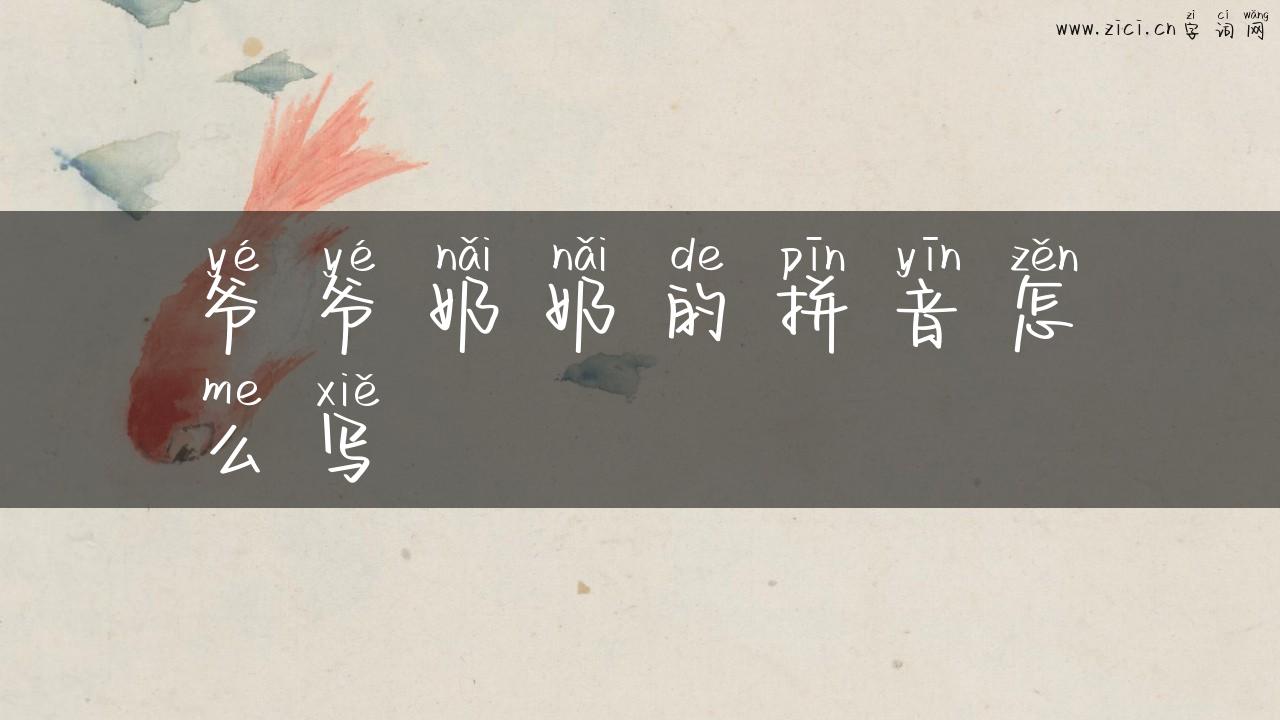 zì cí wǎng
www.zici.cn 字 词 网
yé yé nǎi nǎi de pīn yīn zěn
爷 爷 奶 奶 的 拼 音 怎
me xiě
么 写